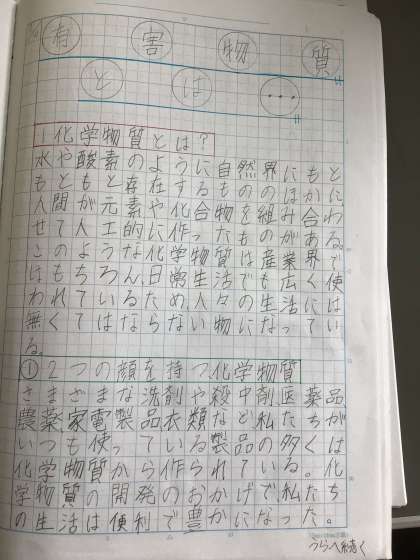 有害物質
とは…
1化学物質とは?
水や酸素のように自然界にもと
もともと存在するもののほかに
人間が元素や化合物を組み合わ
せて人工的に作ったものがある。
このような化学物質は産業界で
はもちろん、日常生活でも広く使
われているため、人々の生活には
無くてはならない物になってい
る。
①2つの顔を持つ、化学物質
さまざまな洗剤や殺虫剤医薬品
農薬、家電製品衣類など私たちが
いつも使っている製品の多くは
化学物質から作られている。化
学物質の開発のおかげで、私たち
の生活は便利で豊かになった。
うらへ続く